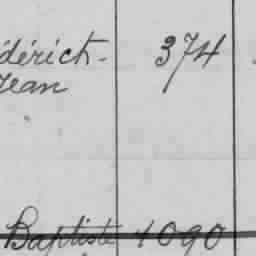 dérich- 374
Jean
Baptiste 1090